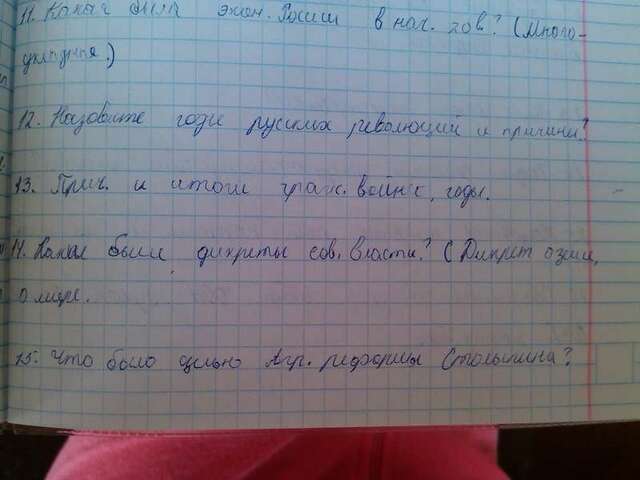 11. Какая была экон. России в нач. 20 в? (Много-
укладная.)
12. Назовите годы русских революций и причины?
13. Прич. и итоги граж. войны, годы.
14. Какая были дикреты сов. власти? (Дикрет о земле,
о мире.
15. Что было целью Агр. реформы Столыпина?